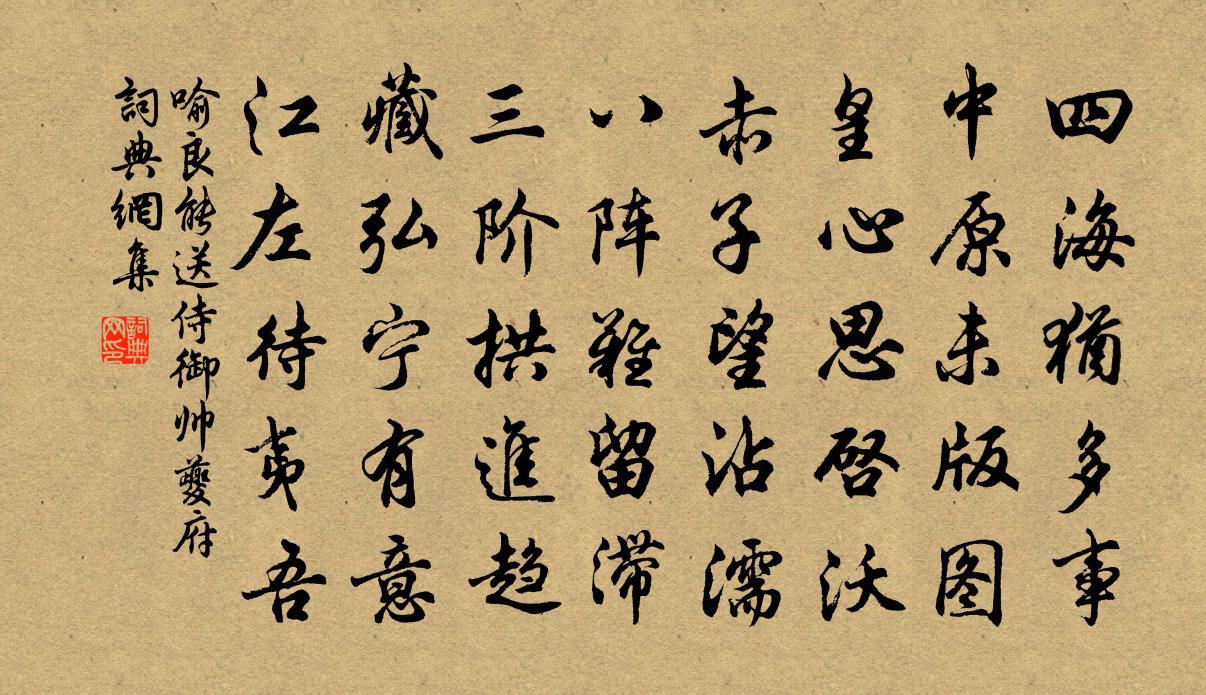 四海犹多事
中原未版图
皇心思启沃
赤子望沾濡
八阵难留滞
三阶拱進趋
藏弘宁有意
江左待夷吾
喻良能送侍御帅夔府
詞典網集
詞典网印